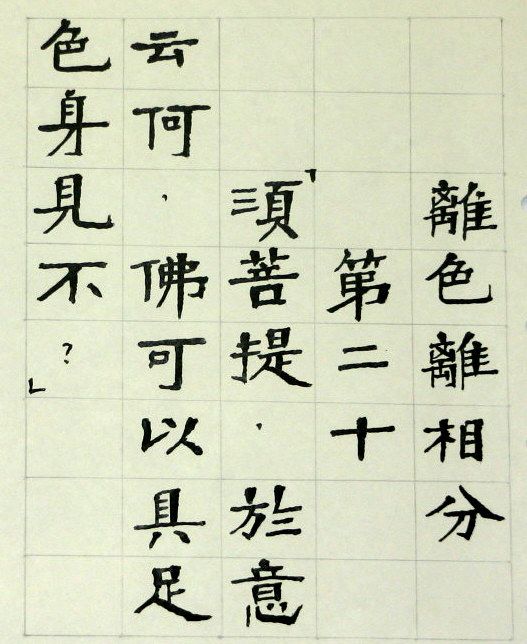 離色離相分
第二十
「須菩提，於意
云何，佛可以具足
色身見不？」